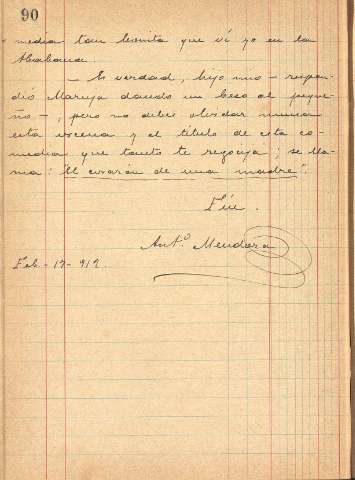 90
media tan bonita que ví yo en la
Habana.
— Es verdad, hijo mio — respon-
dió Maruja dando un beso al peque-
ño —; pero no debes olvidar nunca
esta escena y el título de esta co-
media que tanto te regocija; se lla-
ma: El corazón de una madre".
Fin.
Ant.º Mendoza
Feb - 17 - 912.